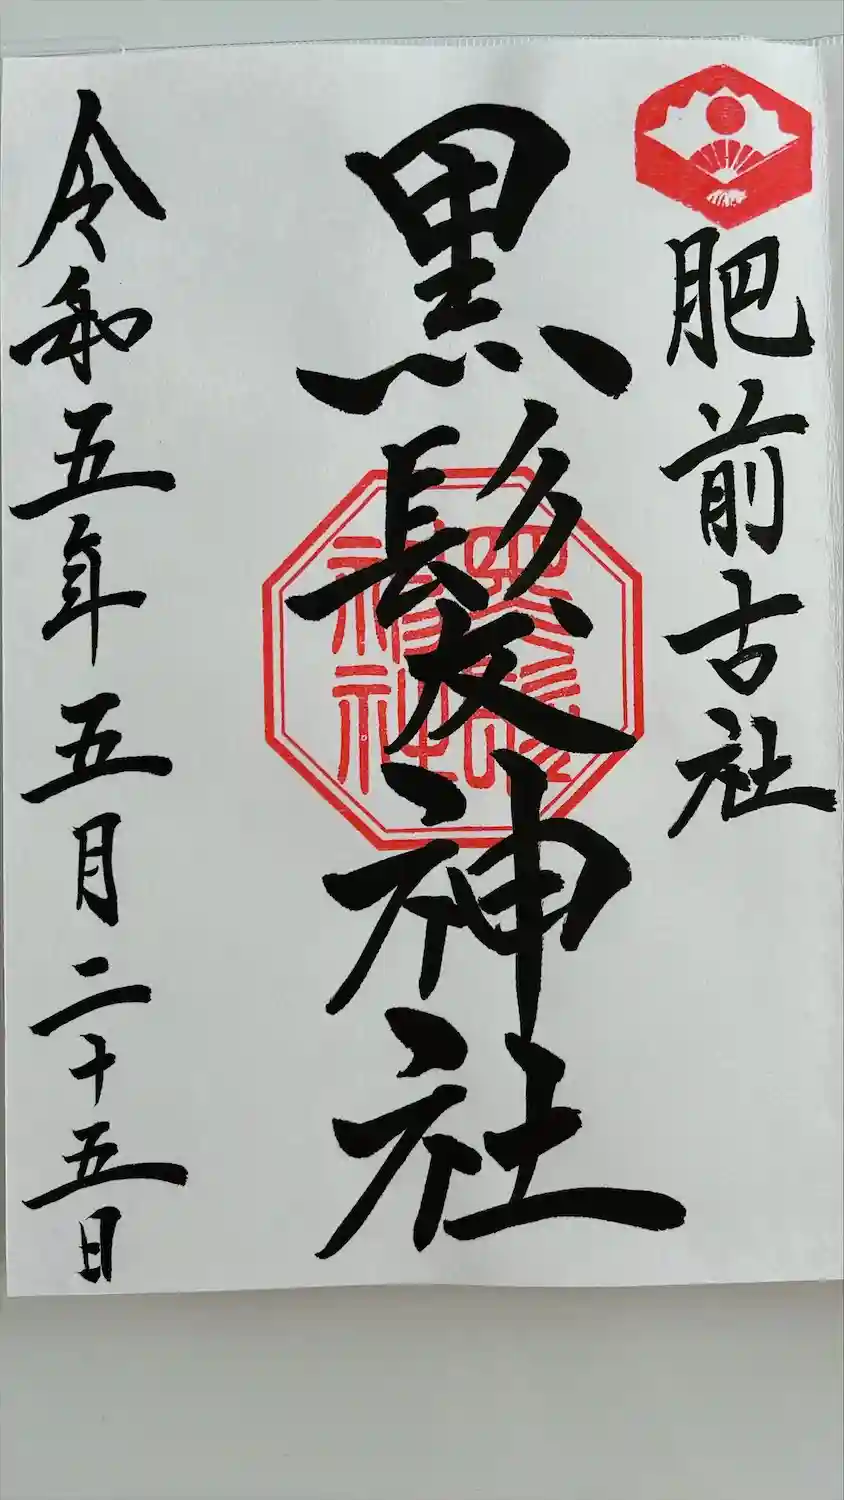 肥前古社
黒髪神社
黒髪
神社
令和五年五月二十五日